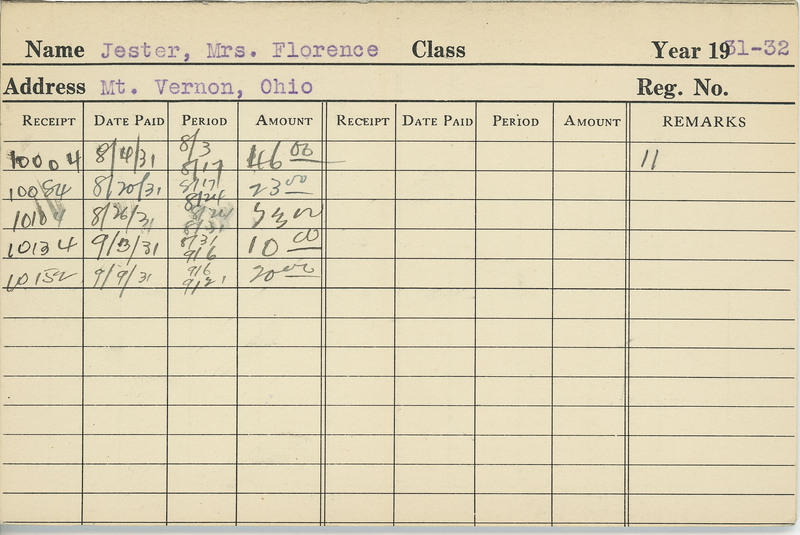 Name Jester, Mrs. Florence Class Year 1931-32
Address Mt. Vernon, Ohio Reg. No.
RECEIPT DATE PAID PERIOD AMOUNT RECEIPT DATE PAID PERIOD AMOUNT REMARKS
10004 8/4/31 8/3 8/17 46 00 11
10084 8/20/31 8/17 8/24 23 00
8/26/31 8/24 8/31 00
10134 9/3/31 8/31 9/6 10 00
10152 9/9/31 9/6 9/21 20 00